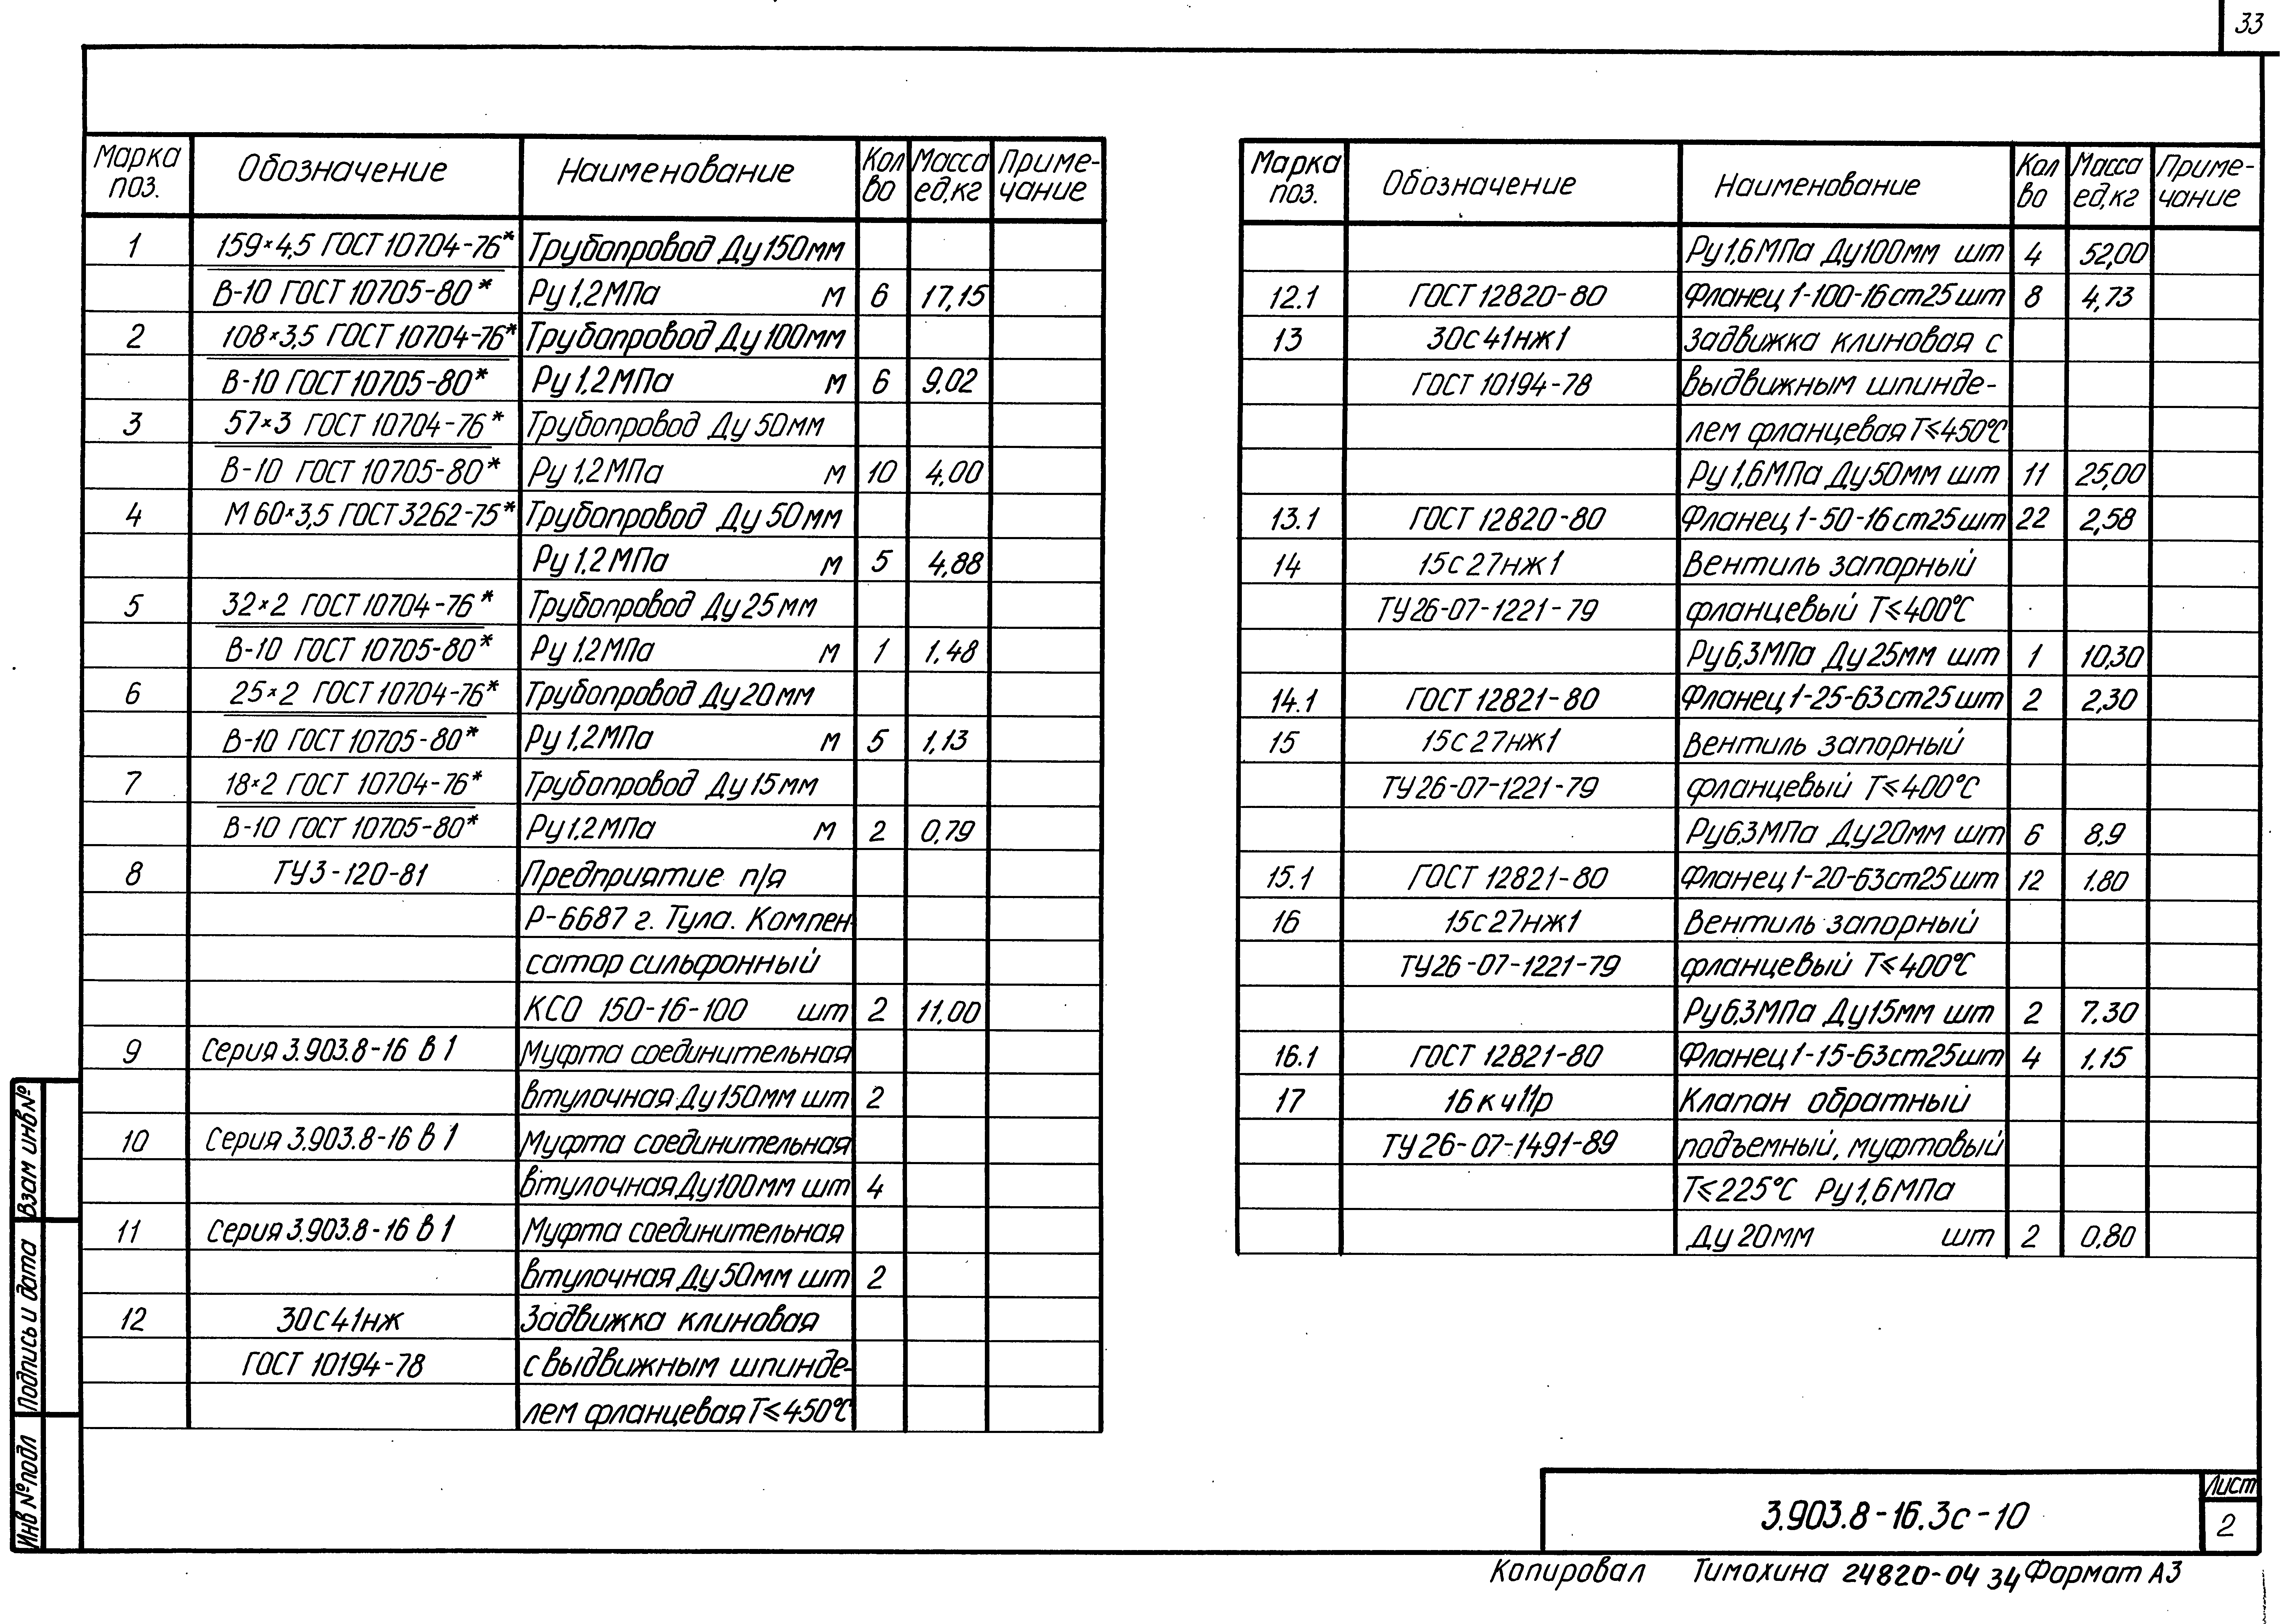 33
Марка поз. Обозначение Наименование Кол во Масса ед,кг Приме-чание
1 159×4,5 ГОСТ 10704-76* Трубопровод Ду150мм
В-10 ГОСТ 10705-80* Ру 1,2МПа м 6 17,15
2 108×3,5 ГОСТ 10704-76* Трубопровод Ду100мм
В-10 ГОСТ 10705-80* Ру 1,2МПа м 6 9,02
3 57×3 ГОСТ 10704-76* Трубопровод Ду 50мм
В-10 ГОСТ 10705-80* Ру 1,2МПа м 10 4,00
4 М 60×3,5 ГОСТ 3262-75* Трубопровод Ду 50мм
Ру 1,2МПа м 5 4,88
5 32×2 ГОСТ 10704-76* Трубопровод Ду 25мм
В-10 ГОСТ 10705-80* Ру 1,2МПа м 1 1,48
6 25×2 ГОСТ 10704-76* Трубопровод Ду 20мм
В-10 ГОСТ 10705-80* Ру 1,2МПа м 5 1,13
7 18×2 ГОСТ 10704-76* Трубопровод Ду 15мм
В-10 ГОСТ 10705-80* Ру 1,2МПа м 2 0,79
8 ТУ3-120-81 Предприятие п/я
Р-6687 г. Тула. Компен-
сатор сильфонный
КСО 150-16-100 шт 2 11,00
9 Серия 3.903.8-16 в 1 Муфта соединительная
втулочная Ду150мм шт 2
10 Серия 3.903.8-16 в 1 Муфта соединительная
втулочная Ду100мм шт 4
11 Серия 3.903.8-16 в 1 Муфта соединительная
втулочная Ду 50мм шт 2
12 30с41нж Задвижка клиновая
ГОСТ 10194-78 с выдвижным шпинде-
лем фланцевая Т≤450°С
Марка поз. Обозначение Наименование Кол во Масса ед,кг Приме-чание
Ру 1,6МПа Ду100мм шт 4 52,00
12.1 ГОСТ 12820-80 Фланец 1-100-16ст25 шт 8 4,73
13 30с41нж1 Задвижка клиновая с
ГОСТ 10194-78 выдвижным шпинде-
лем фланцевая Т≤450°С
Ру 1,6МПа Ду50мм шт 11 25,00
13.1 ГОСТ 12820-80 Фланец 1-50-16ст25 шт 22 2,58
14 15с27нж1 Вентиль запорный
ТУ26-07-1221-79 фланцевый Т≤400°С
Ру6,3МПа Ду25мм шт 1 10,30
14.1 ГОСТ 12821-80 Фланец 1-25-63ст25 шт 2 2,30
15 15с27нж1 Вентиль запорный
ТУ26-07-1221-79 фланцевый Т≤400°С
Ру6,3МПа Ду20мм шт 6 8,9
15.1 ГОСТ 12821-80 Фланец 1-20-63ст25 шт 12 1.80
16 15с27нж1 Вентиль запорный
ТУ26-07-1221-79 фланцевый Т≤400°С
Ру6,3МПа Ду15мм шт 2 7.30
16.1 ГОСТ 12821-80 Фланец 1-15-63ст25шт 4 1.15
17 16кч11р Клапан обратный
ТУ 26-07-1491-89 подъемный, муфтовый
Т≤225°С Ру 1,6МПа
Ду 20мм шт 2 0,80
Взам инв№
Подпись и дата
Инв № подл
3.903.8-16.3с-10
Лист
2
Копировал Тимохина 24820-04 34 Формат А3